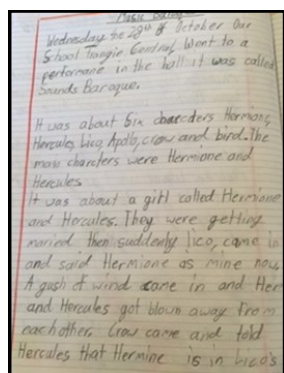 Music Baroque
Wednesday the 28th of October Our
School Trangie Central Went to a
performane in the hall it was called
Sounds Baroque.
It was about Six charcders Hermione,
Hercules, Lico, Apollo, crow and bird. The
main charcters were Hermione and
Hercules
It was about a girl called Hermione
and Hercules. They were getting
maried then suddenly lico, came in
and said Hermione as mine now.
A gush of wind came in and Her
and Hercules got blown away from
eachother. Crow came and told
Hercules that Hermine is in Lico's